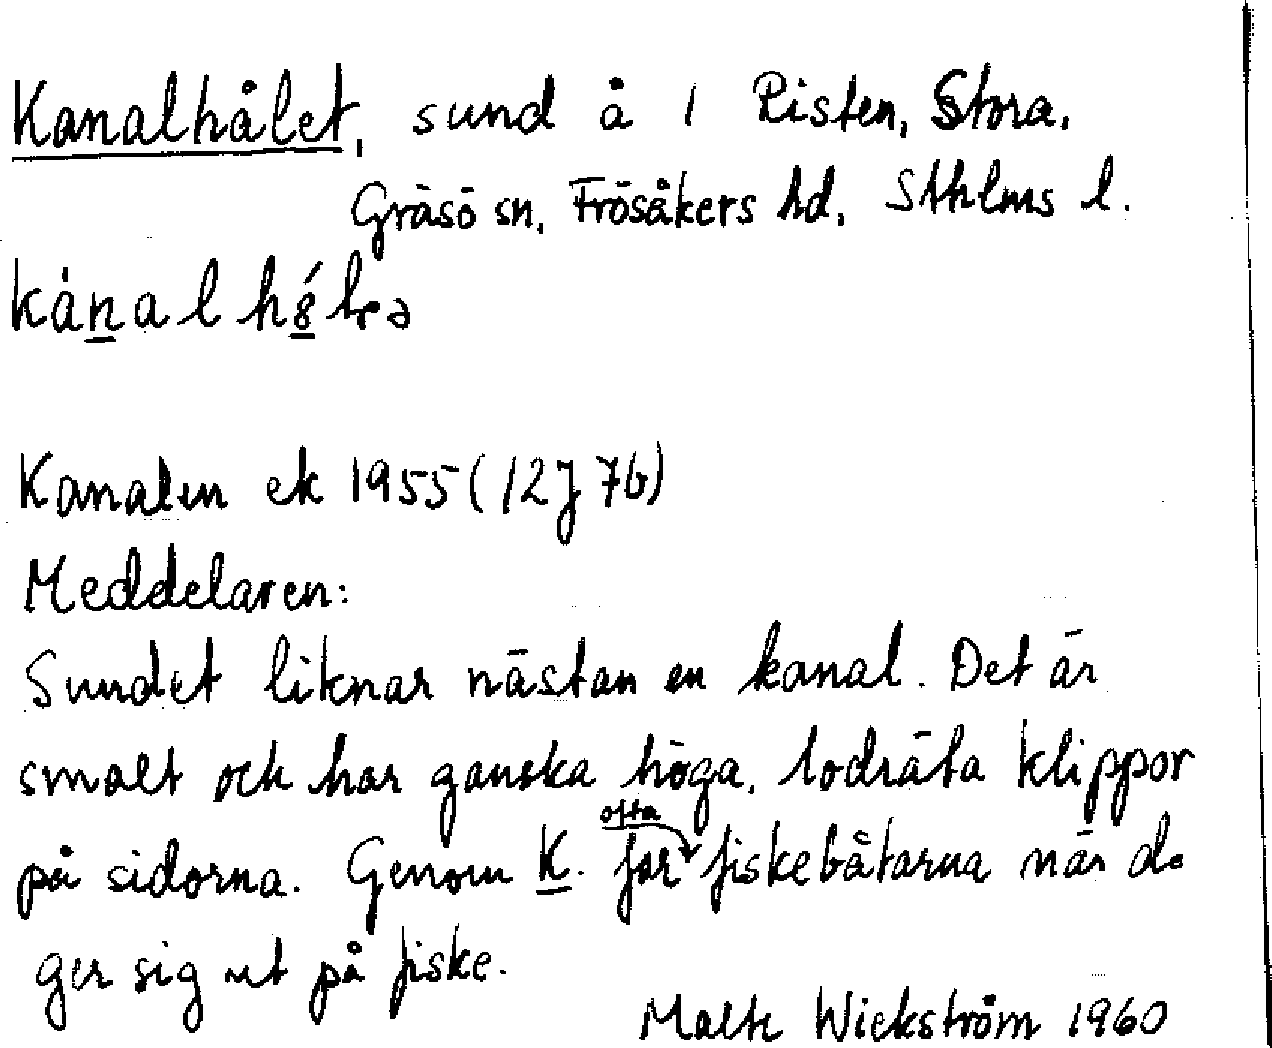 Kanalhålet, sund å 1 Risten, Stora,
Gräsö sn, Frösåkers hd, Sthlms l.
Kanalen ek 1955 (12J 7b)
Meddelaren:
Sundet liknar nästan en kanal. Det är
smalt och har ganska höga, lodräta klippor
på sidorna. Genom K. far ofta fiskebåtarna när de
ger sig ut på fiske.
Malte Wickström 1960